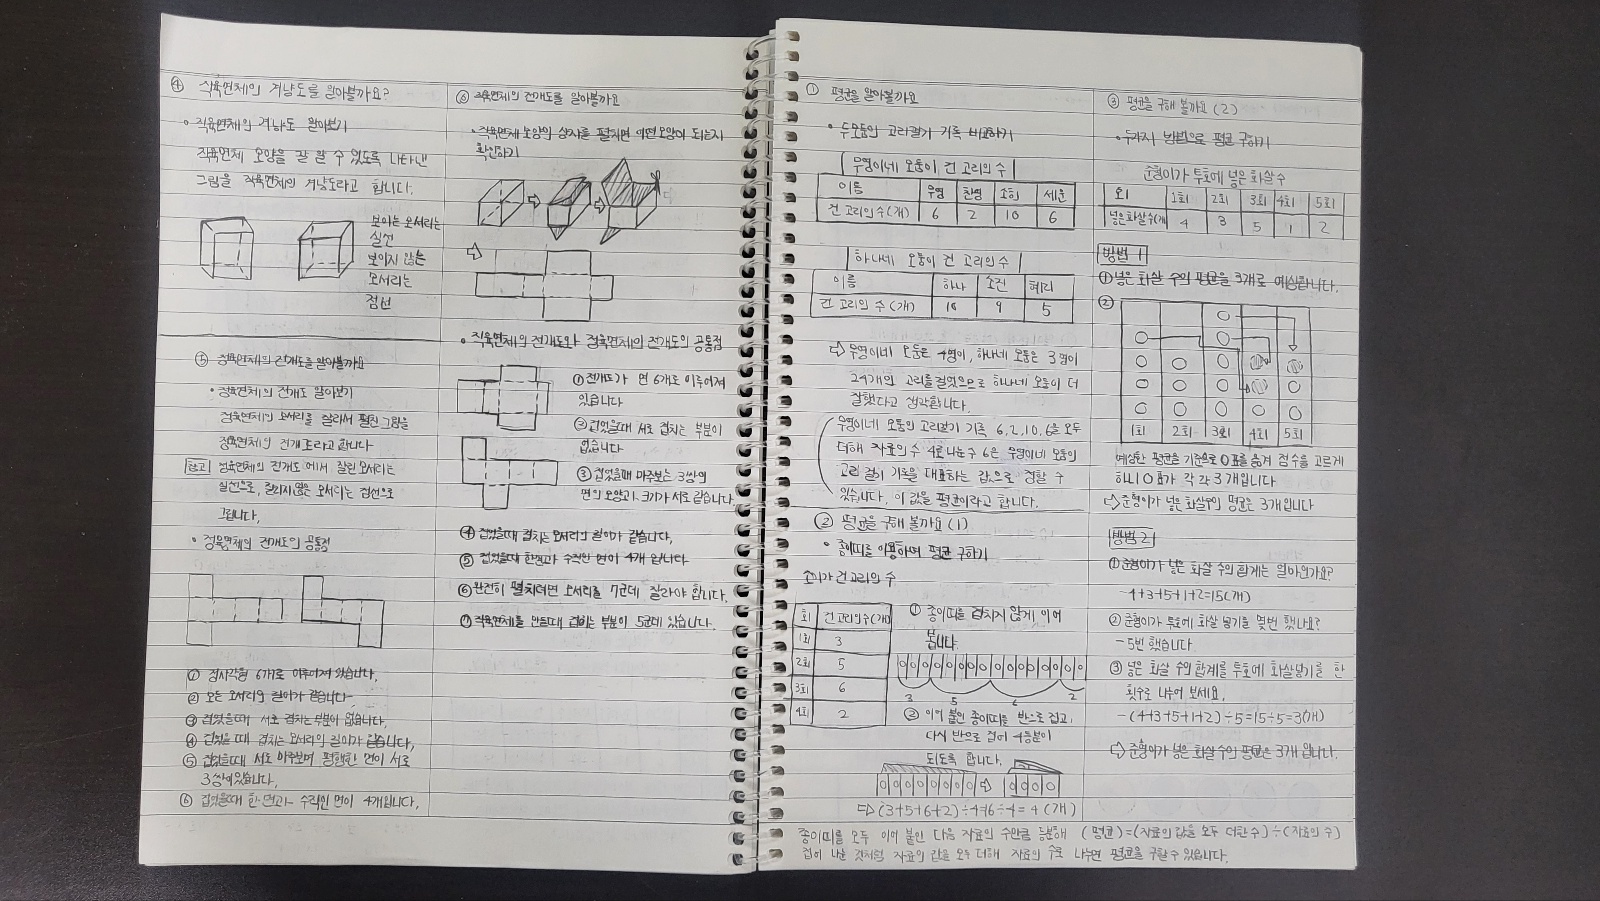 ④ 직육면체의 겨냥도를 알아볼까요?
• 직육면체의 겨냥도 알아보기
직육면체 모양을 잘 알 수 있도록 나타낸
그림을 직육면체의 겨냥도라고 합니다.
보이는 모서리는
실선
보이지 않는
모서리는
점선
⑤ 정육면체의 전개도를 알아볼까요
• 정육면체의 전개도 알아보기
정육면체의 모서리를 잘라서 펼친 그림을
정육면체의 전개도라고 합니다
참고 정육면체의 전개도에서 잘린 모서리는
실선으로, 잘리지 않은 모서리는 점선으로
그립니다.
• 정육면체의 전개도의 공통점
① 정사각형 6개로 이루어져 있습니다.
② 모든 모서리의 길이가 같습니다
③ 접었을때 서로 겹치는 부분이 없습니다.
④ 접었을 때 겹치는 모서리의 길이가 같습니다.
⑤ 접었을때 서로 마주보며 평행한 면이 서로
3쌍이 있습니다.
⑥ 접었을때 한 면과 수직인 면이 4개입니다.
⑥ 직육면체의 전개도를 알아볼까요
• 직육면체 모양의 상자를 펼치면 어떤 모양이 되는지
확인하기
• 직육면체의 전개도와 정육면체의 전개도의 공통점
① 전개도가 면 6개로 이루어져
있습니다
② 접었을때 서로 겹치는 부분이
없습니다
③ 접었을때 마주보는 3쌍의
면의 모양과 크기가 서로 같습니다.
④ 접었을때 겹치는 모서리의 길이가 같습니다.
⑤ 접었을때 한면과 수직인 면이 4개 입니다
⑥ 완전히 펼치려면 모서리를 7군데 잘라야 합니다.
⑦ 직육면체를 만들때 접히는 부분이 5군데 있습니다.
① 평균을 알아볼까요
• 두모둠의 고리걸기 기록 비교하기
우영이네 모둠이 건 고리의 수
이름 우영 찬영 소희 세윤
건 고리의 수(개) 6 2 10 6
하나네 모둠이 건 고리의 수
이름 하나 혜리
건 고리의 수(개) 10 9 5
⇨ 우영이네 모둠은 4명이, 하나네 모둠은 3명이
24개의 고리를 걸었으므로 하나네 모둠이 더
잘했다고 생각합니다.
우영이네 모둠의 고리걸기 기록 6, 2, 10, 6을 모두
더해 자료의 수 4로 나눈 수 6은 우영이네 모둠의
고리 걸기 기록을 대표하는 값으로 정할 수
있습니다. 이 값을 평균이라고 합니다.
② 평균을 구해 볼까요 (1)
• 종이띠를 이용하여 평균 구하기
건 고리의 수
회 건 고리의 수(개)
1회 3
2회 5
3회 6
4회 2
① 종이띠를 겹치지 않게 이어
붙입니다.
3 5 6 2
② 이어 붙인 종이띠를 반으로 접고,
다시 반으로 접어 4등분이
되도록 합니다.
⇨ (3+5+6+2)÷4=16÷4=4 (개)
종이띠를 모두 이어 붙인 다음 자료의 수만큼 등분해 (평균)=(자료의 값을 모두 더한 수)÷(자료의 수)
접어 나눈 것처럼 자료의 값을 모두 더해 자료의 수로 나누면 평균을 구할 수 있습니다.
③ 평균을 구해 볼까요 (2)
• 두가지 방법으로 평균 구하기
준형이가 투호에 넣은 화살 수
회 1회 2회 3회 4회 5회
넣은 화살 수(개) 4 3 5 1 2
방법 1
① 넣은 화살 수의 평균을 3개로 예상합니다.
②
1회 2회 3회 4회 5회
예상한 평균을 기준으로 O표를 옮겨 점수를 고르게
하니 O표가 각각 3개입니다
⇨ 준형이가 넣은 화살 수의 평균은 3개입니다
방법 2
① 준형이가 넣은 화살 수의 합계는 얼마인가요?
-4+3+5+1+2=15(개)
② 준형이가 투호에 화살 넣기를 몇번 했나요?
-5번 했습니다
③ 넣은 화살 수의 합계를 투호에 화살넣기를 한
횟수로 나누어 보세요.
-(4+3+5+1+2)÷5=15÷5=3(개)
⇨ 준형이가 넣은 화살 수의 평균은 3개 입니다.